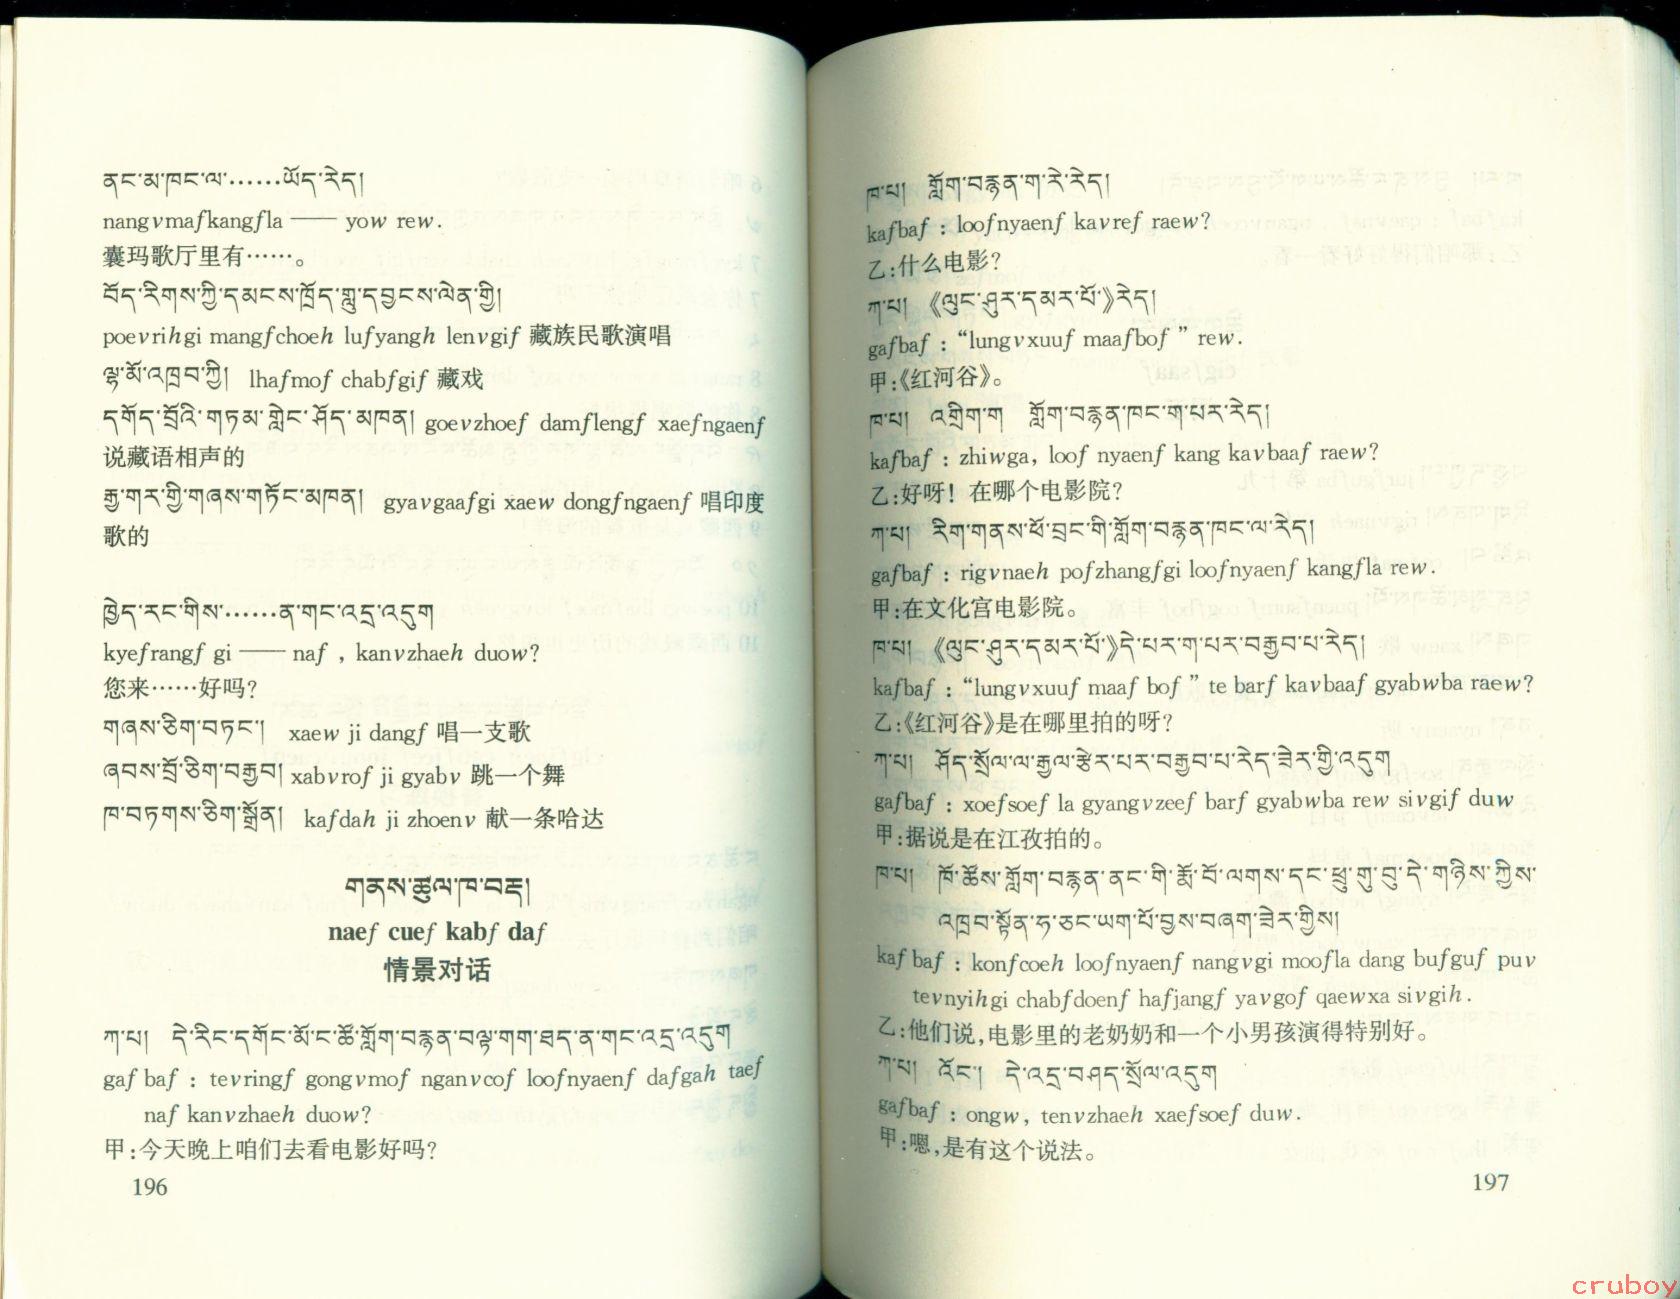 ནང་མ་ཁང་ལ་……ཡོད་རེད།
nangvmafkangfla —— yow rew.
囊玛歌厅里有……。
བོད་རིགས་ཀྱི་དམངས་ཁྲོད་གླུ་དབྱངས་ལེན་གྱི།
poevrihgi mangfchoeh lufyangh lenvgif 藏族民歌演唱
ལྷ་མོ་འཁྲབ་ཀྱི། lhafmof chabfgif 藏戏
དགོད་བྲོའི་གཏམ་གླེང་ཤོད་མཁན། goevzhoef damflengf xaefngaenf
说藏语相声的
རྒྱ་གར་གྱི་གཞས་གཏོང་མཁན། gyavgaafgi xaew dongfngaenf 唱印度
歌的
ཁྱེད་རང་གིས་……ན་གང་འདྲ་འདུག
kyefrangf gi —— naf , kanvzhaeh duow?
您来……好吗?
གཞས་ཅིག་བཏང་། xaew ji dangf 唱一支歌
ཞབས་བྲོ་ཅིག་བརྒྱབ། xabvrof ji gyabv 跳一个舞
ཁ་བཏགས་ཅིག་སྒྲོན། kafdah ji zhoenv 献一条哈达
གནས་ཚུལ་ཁ་བརྡ།
naef cuef kabf daf
情景对话
ཀ་པ། དེ་རིང་དགོང་མོ་ང་ཚོ་གློག་བརྙན་བལྟ་གག་ཐད་ན་གང་འདྲ་འདུག
gaf baf : tevringf gongvmof nganvcof loofnyaenf dafgah taef
naf kanvzhaeh duow?
甲:今天晚上咱们去看电影好吗?
196
ཁ་པ། གློག་བརྙན་ག་རེ་རེད།
kafbaf : loofnyaenf kavref raew?
乙:什么电影?
ཀ་པ། 《ལུང་ཤུར་དམར་པོ་》རེད།
gafbaf : “lungvxuuf maafbof ” rew.
甲:《红河谷》。
ཁ་པ། འགྲིག་ག གློག་བརྙན་ཁང་ག་པར་རེད།
kafbaf : zhiwga, loof nyaenf kang kavbaaf raew?
乙:好呀! 在哪个电影院?
ཀ་པ། རིག་གནས་ཕོ་བྲང་གི་གློག་བརྙན་ཁང་ལ་རེད།
gafbaf : rigvnaeh pofzhangfgi loofnyaenf kangfla rew.
甲:在文化宫电影院。
ཁ་པ། 《ལུང་ཤུར་དམར་པོ་》དེ་པར་ག་པར་བརྒྱབ་པ་རེད།
kafbaf : “lungvxuuf maaf bof ” te barf kavbaaf gyabwba raew?
乙:《红河谷》是在哪里拍的呀?
ཀ་པ། ཤོད་སྲོལ་ལ་རྒྱལ་རྩེར་པར་བརྒྱབ་པ་རེད་ཟེར་གྱི་འདུག
gafbaf : xoefsoef la gyangvzeef barf gyabwba rew sivgif duw
甲:据说是在江孜拍的。
ཁ་པ། ཁོ་ཚོས་གློག་བརྙན་ནང་གི་རྨོ་བོ་ལགས་དང་ཕྲུ་གུ་བུ་དེ་གཉིས་ཀྱིས་
འཁྲབ་སྟོན་ཧ་ཅང་ཡག་པོ་བྱས་བཞག་ཟེར་གྱིས།
kaf baf : konfcoeh loofnyaenf nangvgi moofla dang bufguf puv
tevnyihgi chabfdoenf hafjangf yavgof qaewxa sivgih.
乙:他们说,电影里的老奶奶和一个小男孩演得特别好。
ཀ་པ། འོང་། དེ་འདྲ་བཤད་སྲོལ་འདུག
gafbaf : ongw, tenvzhaeh xaefsoef duw.
甲:嗯,是有这个说法。
197
cruboy